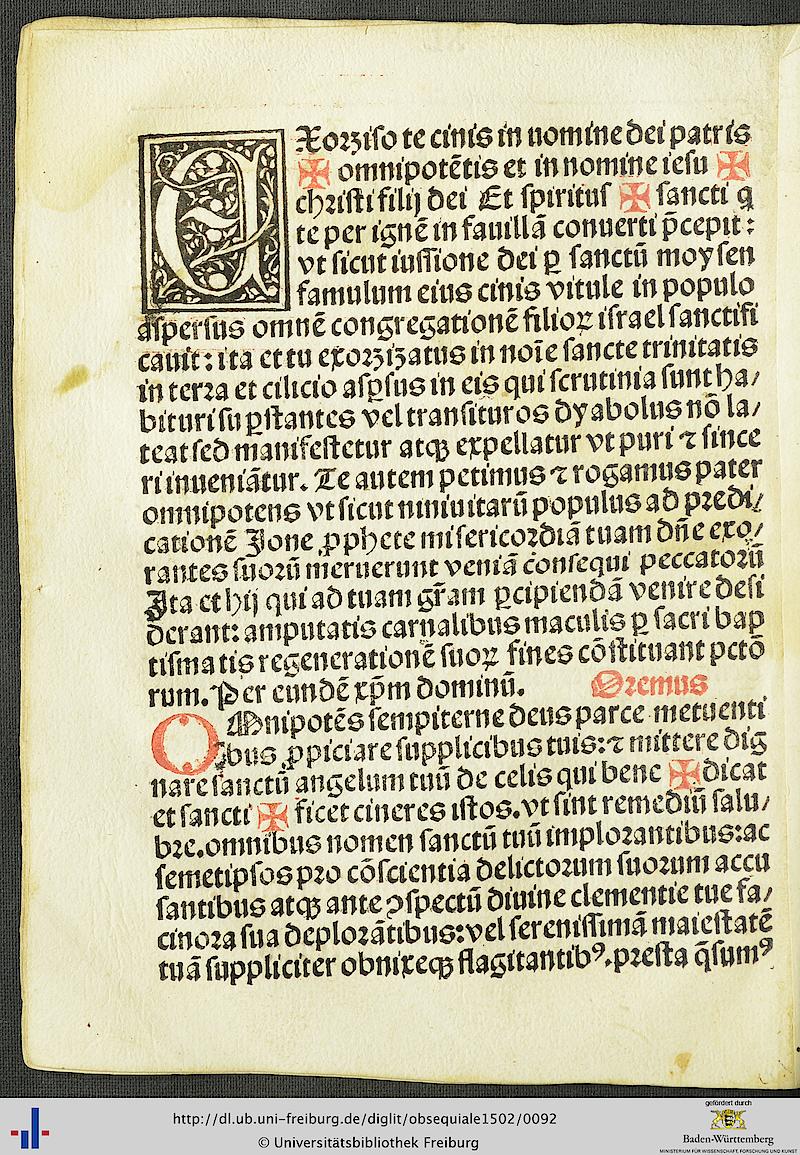 EXorziſo te cinis in nomine dei patris
✠ omnipotētis et in nomine ieſu ✠
chriſti filij dei Et ſpiritus ✠ ſancti q
te per ignē in fauillā conuerti p̄cepit:
vt ſicut iuſſione dei ꝑ ſanctū moyſen
famulum eius cinis vitule in populo
aſperſus omnē congregationē filioꝝ iſrael ſanctifi
cauit: ita et tu exorzizatus in noīe ſancte trinitatis
in terra et cilicio aſꝑſus in eis qui ſcrutinia ſunt ha/
bituri ſu ꝑſtantes vel tranſituros dyabolus nō la/
teat ſed manifeſtetur atqꝫ expellatur vt puri ⁊ ſince
ri inueniātur. Te autem petimus ⁊ rogamus pater
omnipotens vt ſicut niniuitarū populus ad predi/
cationē Jone ꝓphete miſericordiā tuam dn̄e exo/
rantes ſuorū meruerunt veniā conſequi peccatorū
Ita et hij qui ad tuam gr̄am ꝑcipiendā venire deſi
derant: amputatis carnalibus maculis ꝑ ſacri bap
tiſmatis regenerationē ſuoꝝ fines cōſtituant pctō
rum. Per eundē xp̄m dominū. Oremus
OMnipotēs ſempiterne deus parce metuenti
bus ꝓpiciare ſupplicibus tuis: ⁊ mittere dig
nare ſanctū angelum tuū de celis qui bene ✠ dicat
et ſancti ✠ ficet cineres iſtos. vt ſint remediū ſalu/
bre. omnibus nomen ſanctū tuū implorantibus: ac
ſemetipſos pro cōſcientia delictorum ſuorum accu
ſantibus atqꝫ ante ꝯſpectū diuine clementie tue fa/
cinora ſua deplorātibus: vel ſereniſſimā maieſtatē
tuā ſuppliciter obnixeqꝫ flagitantibꝰ. preſta q̄ſumꝰ
http://dl.ub.uni-freiburg.de/diglit/obsequiale1502/0092
© Universitätsbibliothek Freiburg
gefördert durch
Baden-Württemberg
MINISTERIUM FÜR WISSENSCHAFT, FORSCHUNG UND KUNST